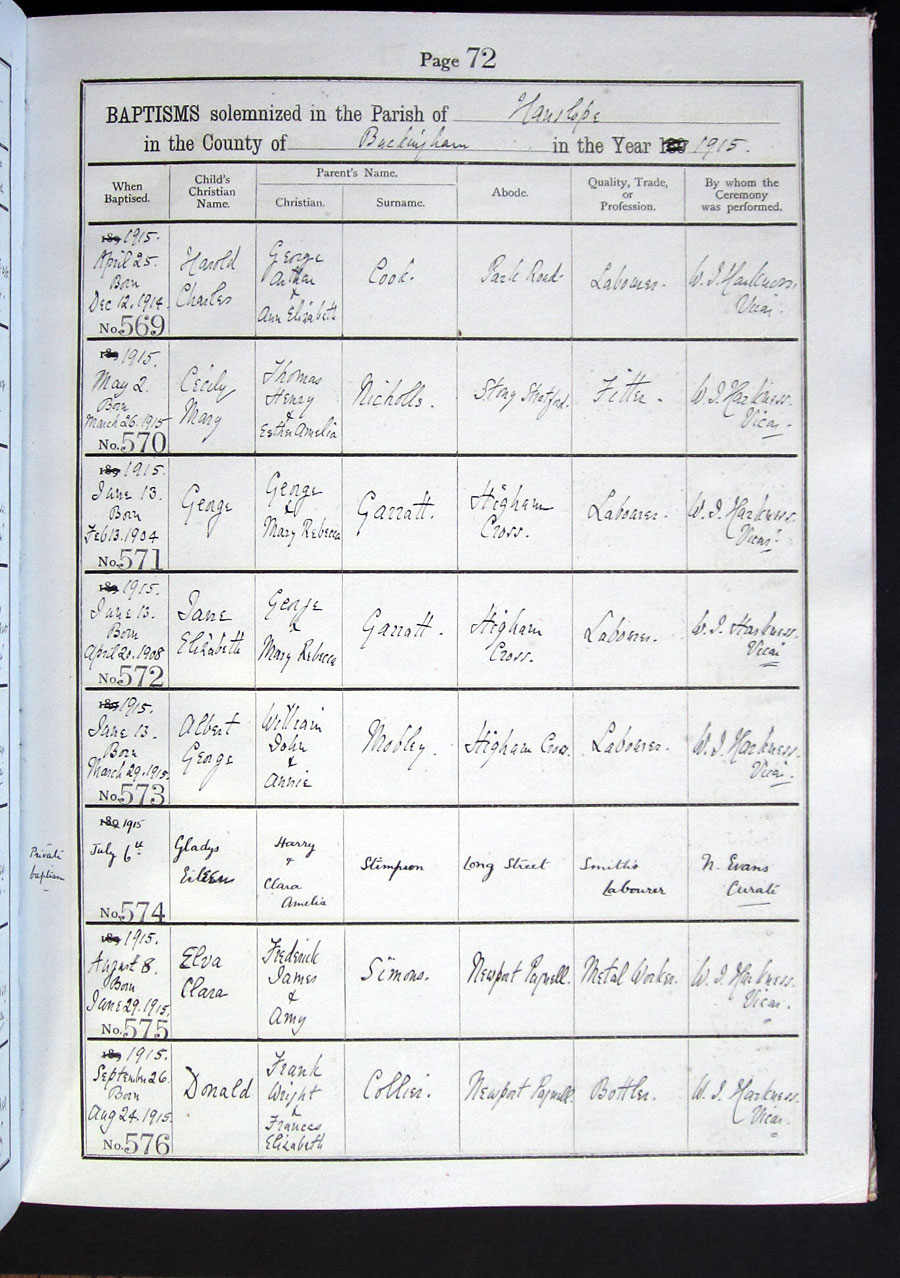 Page 72
BAPTISMS solemnized in the Parish of Hanslope
in the County of Buckingham in the Year 189 1915.
When Baptised.
Child's Christian Name.
Parent's Name.
Christian.
Surname.
Abode.
Quality, Trade, or Profession.
By whom the Ceremony was performed.
189 1915.
April 25.
Born
Dec 12. 1914.
No. 569
Harold
Charles
George
Arthur
&
Ann Elizabeth
Cook.
Park Road.
Labourer.
W. J. Harkness.
Vicar.
189 1915.
May 2.
Born
March 26. 1915
No. 570
Cecily
Mary
Thomas
Henry
&
Esther Amelia
Nicholls.
Stony Stratford.
Fitter.
W. J. Harkness.
Vicar.
189 1915.
June 13.
Born
Feb 13. 1904
No. 571
George
George
&
Mary Rebecca
Garratt.
Higham
Cross.
Labourer.
W. J. Harkness.
Vicar.
189 1915.
June 13.
Born
April 20. 1908
No. 572
Jane
Elizabeth
George
&
Mary Rebecca
Garratt.
Higham
Cross.
Labourer.
W. J. Harkness.
Vicar
189 1915.
June 13.
Born
March 29. 1915.
No. 573
Albert
George
William
John
&
Annie
Mobley.
Higham Cross.
Labourer.
W. J. Harkness.
Vicar.
Private
baptism
189 1915
July 6th
No. 574
Gladys
Eileen
Harry
&
Clara
Amelia
Stimpson
Long Street
Smith's
Labourer
N. Evans
Curate
189 1915.
August 8.
Born
June 29. 1915.
No. 575
Elva
Clara
Frederick
James
&
Amy
Simons.
Newport Pagnell.
Metal Worker.
W. J. Harkness.
Vicar.
189 1915.
September 26.
Born
Aug 24. 1915.
No. 576
Donald
Frank
Wright
&
Frances
Elizabeth
Collier.
Newport Pagnell
Bottler.
W. J. Harkness.
Vicar.